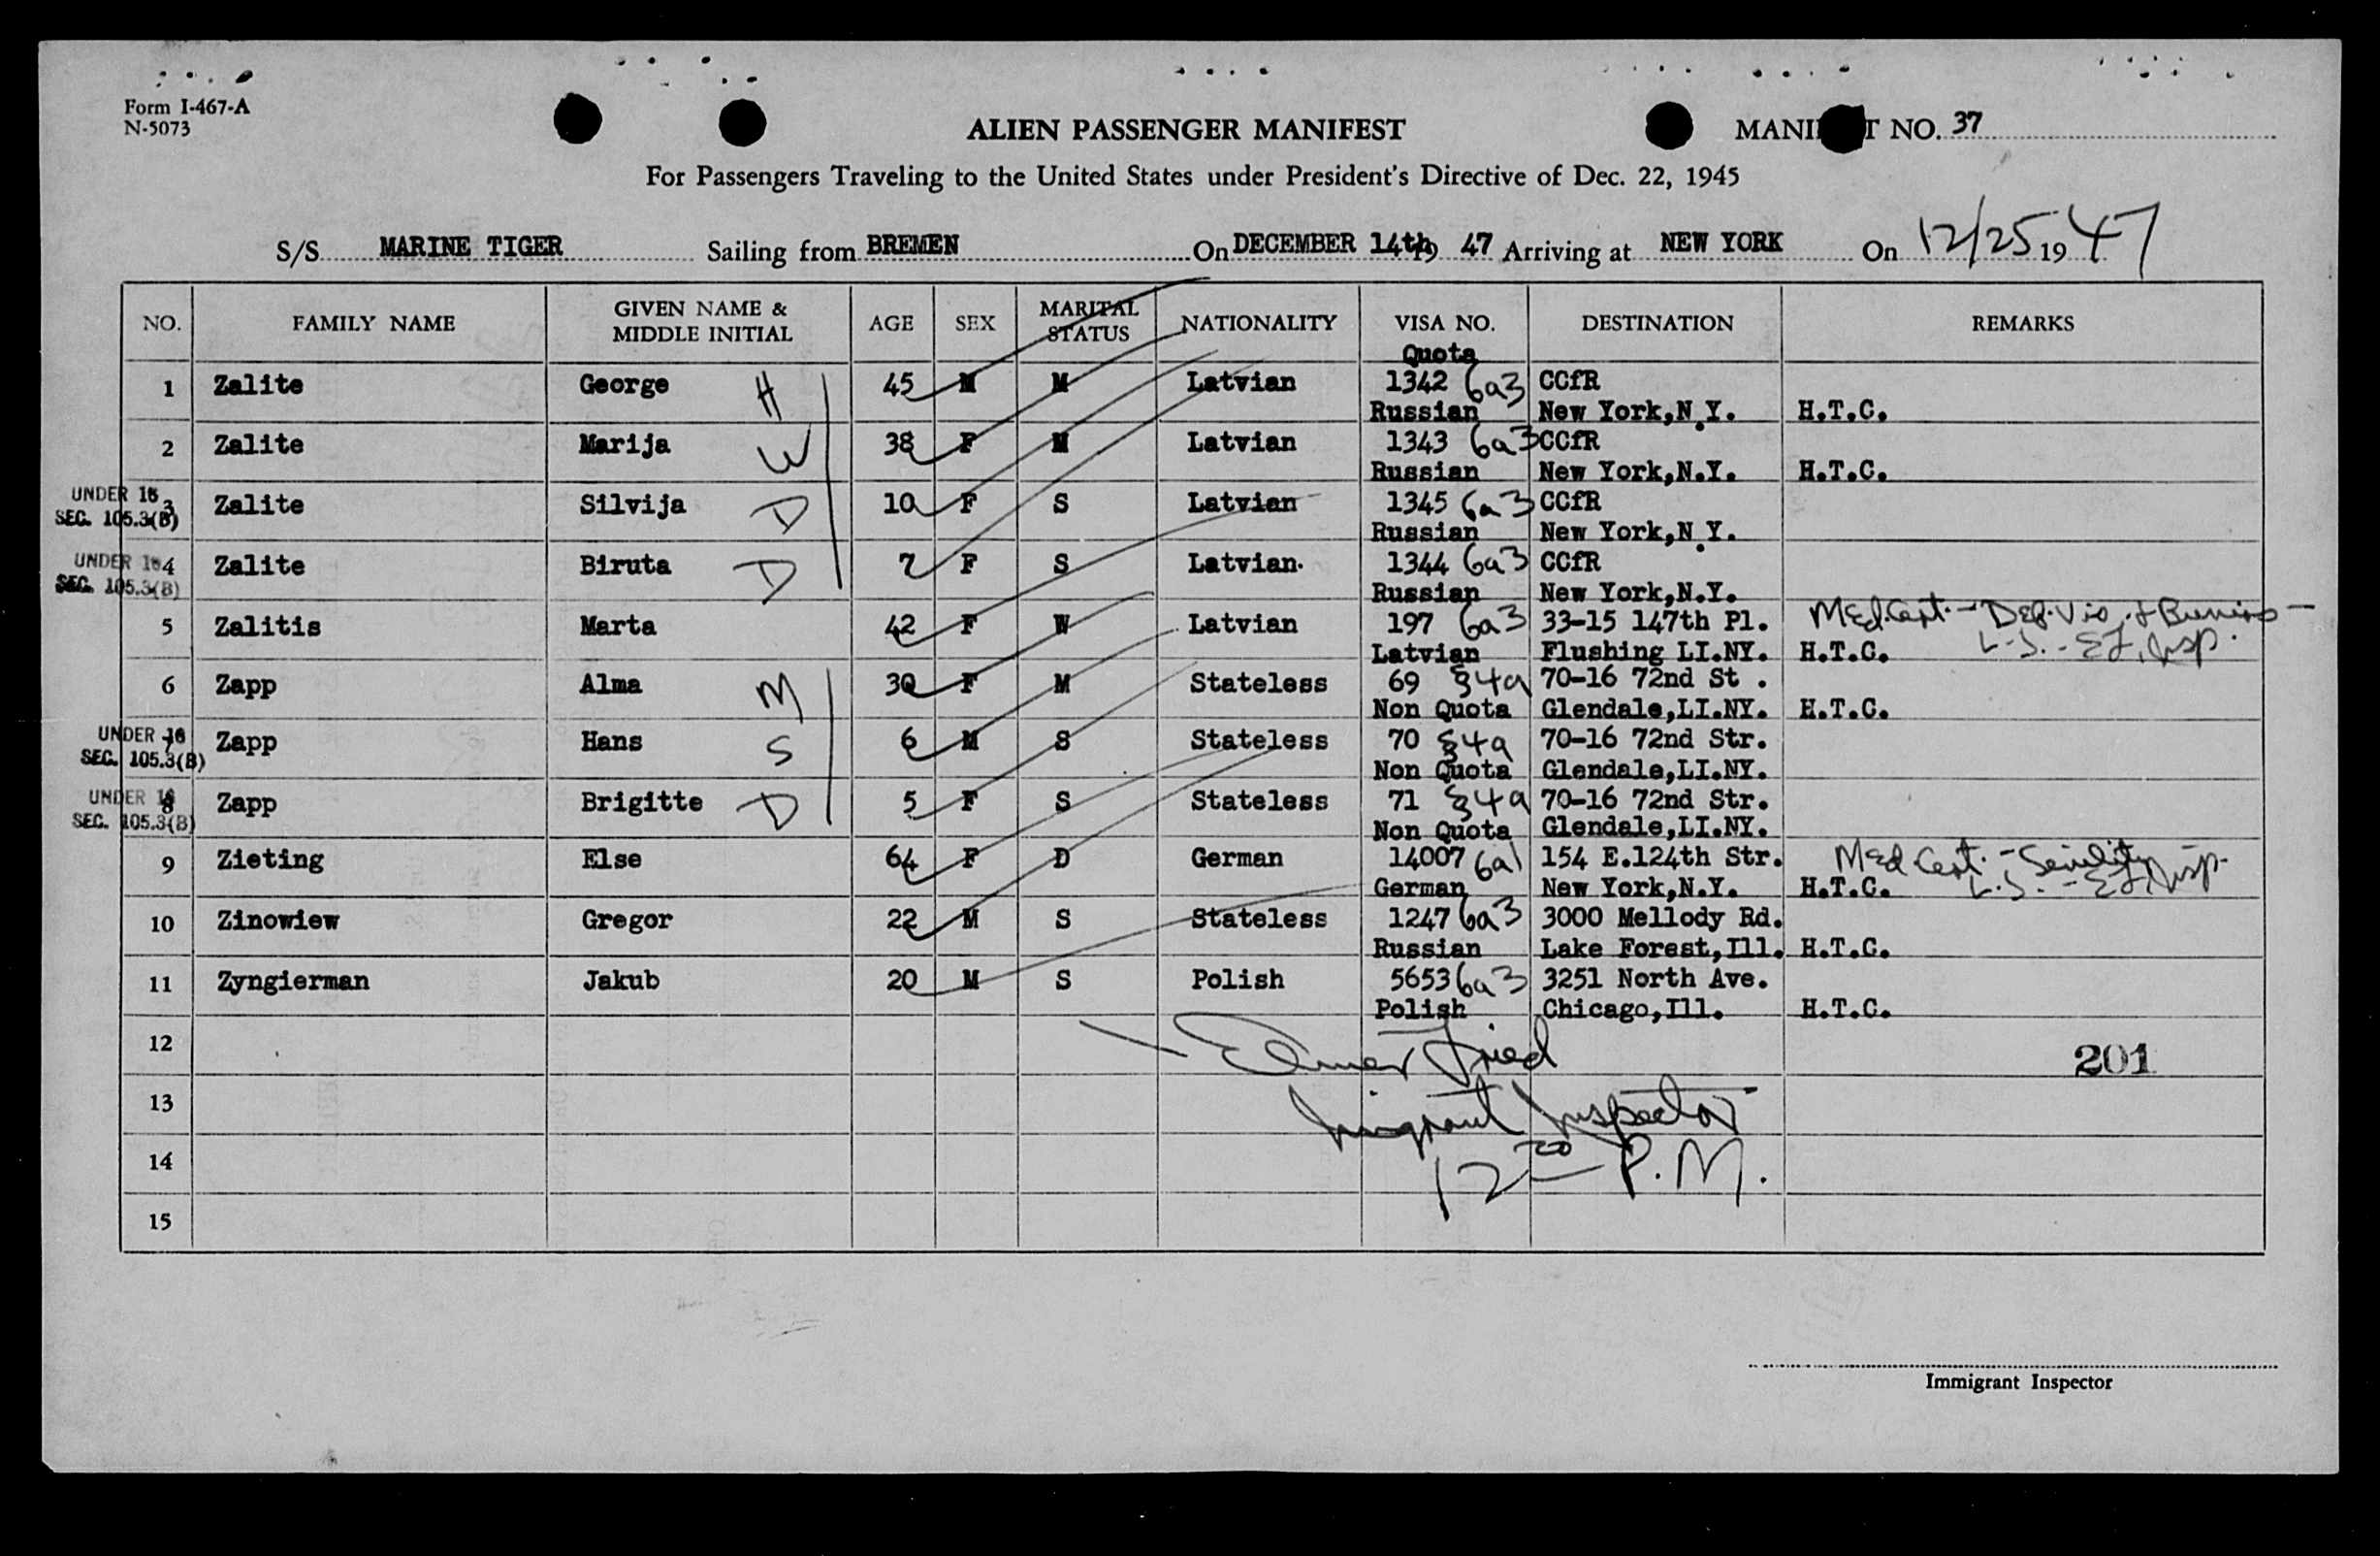 Form I-467-A
N-5073
ALIEN PASSENGER MANIFEST
MANI T NO. 37
For Passengers Traveling to the United States under President's Directive of Dec. 22, 1945
S/S MARINE TIGER Sailing from BREMEN On DECEMBER 14th 47 Arriving at NEW YORK On 12/25 19 47
NO. FAMILY NAME GIVEN NAME & MIDDLE INITIAL AGE SEX MARITAL STATUS NATIONALITY VISA NO. DESTINATION REMARKS
Quota
1 Zalite George H 45 M M Latvian 1342 6a3 CCfR
Russian New York,N.Y. H.T.C.
2 Zalite Marija W 38 F M Latvian 1343 6a3 CCfR
Russian New York,N.Y. H.T.C.
UNDER 16
SEC. 105.3(B)
3 Zalite Silvija D 10 F S Latvian 1345 6a3 CCfR
Russian New York,N.Y.
UNDER 16
SEC. 105.3(B)
4 Zalite Biruta D 7 F S Latvian. 1344 6a3 CCfR
Russian New York,N.Y.
5 Zalitis Marta 42 F W Latvian 197 6a3 33-15 147th Pl. Med. Cert. - Def. Vis. &
Latvian Flushing LI.NY. H.T.C. L.S.
6 Zapp Alma M 30 F M Stateless 69 §4a 70-16 72nd St .
Non Quota Glendale,LI.NY. H.T.C.
UNDER 16
SEC. 105.3(B)
7 Zapp Hans S 6 M S Stateless 70 §4a 70-16 72nd Str.
Non Quota Glendale,LI.NY.
UNDER 16
SEC. 105.3(B)
8 Zapp Brigitte D 5 F S Stateless 71 §4a 70-16 72nd Str.
Non Quota Glendale,LI.NY.
9 Zieting Else 64 F D German 14007 6a1 154 E.124th Str. Med Cert. - Senility
German New York,N.Y. H.T.C. L.S.
10 Zinowiew Gregor 22 M S Stateless 1247 6a3 3000 Mellody Rd.
Russian Lake Forest,Ill. H.T.C.
11 Zyngierman Jakub 20 M S Polish 5653 6a3 3251 North Ave.
Polish Chicago,Ill. H.T.C.
12 Elmer Fried 201
13 Immigrant Inspector
14 12 20 P.M.
15
Immigrant Inspector